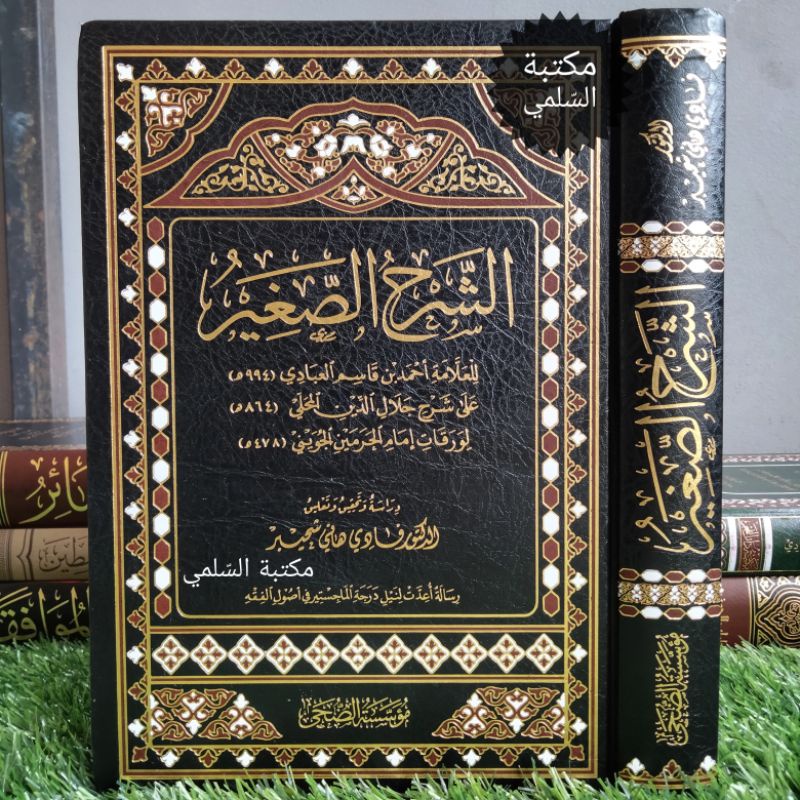 مكتبة
السّلمي
الشَّرحُ الصَّغِيرُ
لِلعَلَّامَةِ أحْمَد بْن قَاسِم العَبَادِي (٩٩٤ه)
عَلَى شَرْحِ جَلَالِ الدِّينِ المَحَلِّي (٨٦٤ه)
لِوَرَقَاتِ إمَامِ الحَرَمَيْنِ الجُوَيْنِيِّ (٤٧٨ه)
دِرَاسَةُ وَتَحْقِيقُ وَتَعْلِيقُ
الدكتور فادي هاني شحيبر
مكتبة السّلمي
رِسَالَةٌ أُعِدَّتْ لِنَيْلِ دَرَجَةِ المَاجِسْتِير فِي أُصُولِ الفِقْهِ
مُؤَسَّسَةُ الضُّحَى
الدكتور
فادي هاني شحيبر
الشَّرحُ الصَّغِيرُ
مُؤَسَّسَةُ الضُّحَى